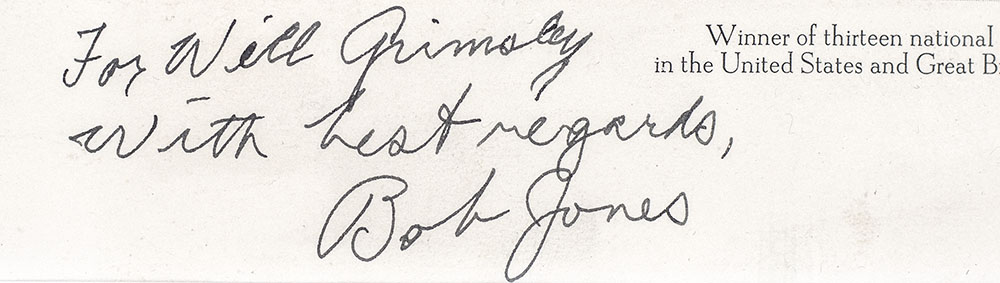 For Will Grimsley
With best regards,
Bob Jones
Winner of thirteen national
in the United States and Great B